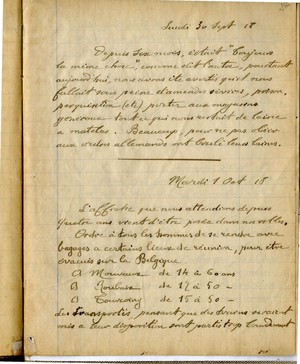 Lundi 30 Sept 18
Depuis dix mois, c'était "Toujours
la même chose", comme dit l'autre, pourtant
aujourd'hui, nous avons été avertis qu'il nous
fallait sous peine d'amendes sévères, prison,
perquisition (etc) porter aux magasins
généraux tout ce qui nous restait de laine
à matelas. Beaucoup, pour ne pas obéir
aux ordres allemands ont brûlé leurs laines.
Mardi 1 Oct 18
L'affiche que nous attendions depuis
quatre ans vient d'être posée dans nos villes.
Ordre à tous les hommes de se rendre avec
bagages à certains lieux de réunion, pour être
évacués sur la Belgique
à Mouvaux de 14 à 60 ans
à Roubaix de 15 à 50 -
à Tourcoing de 15 à 50 -
Les transportés pensant que des trains seraient
mis à leur disposition sont partis trop lourdement